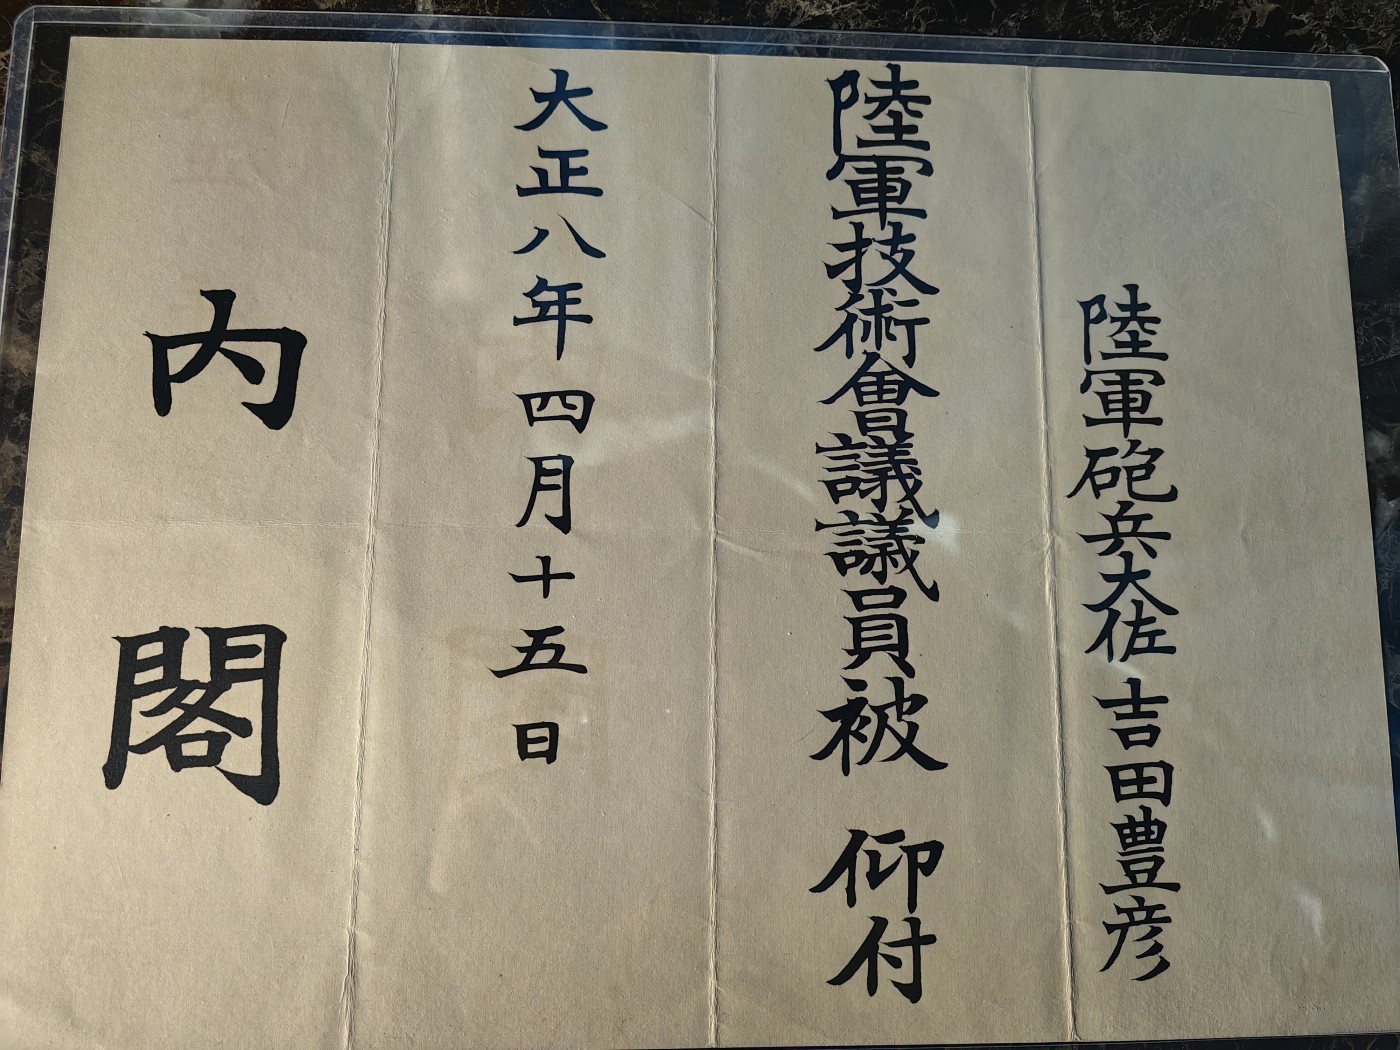 陸軍砲兵大佐吉田豊彦
陸軍技術會議議員被 仰付
大正八年四月十五日
内閣